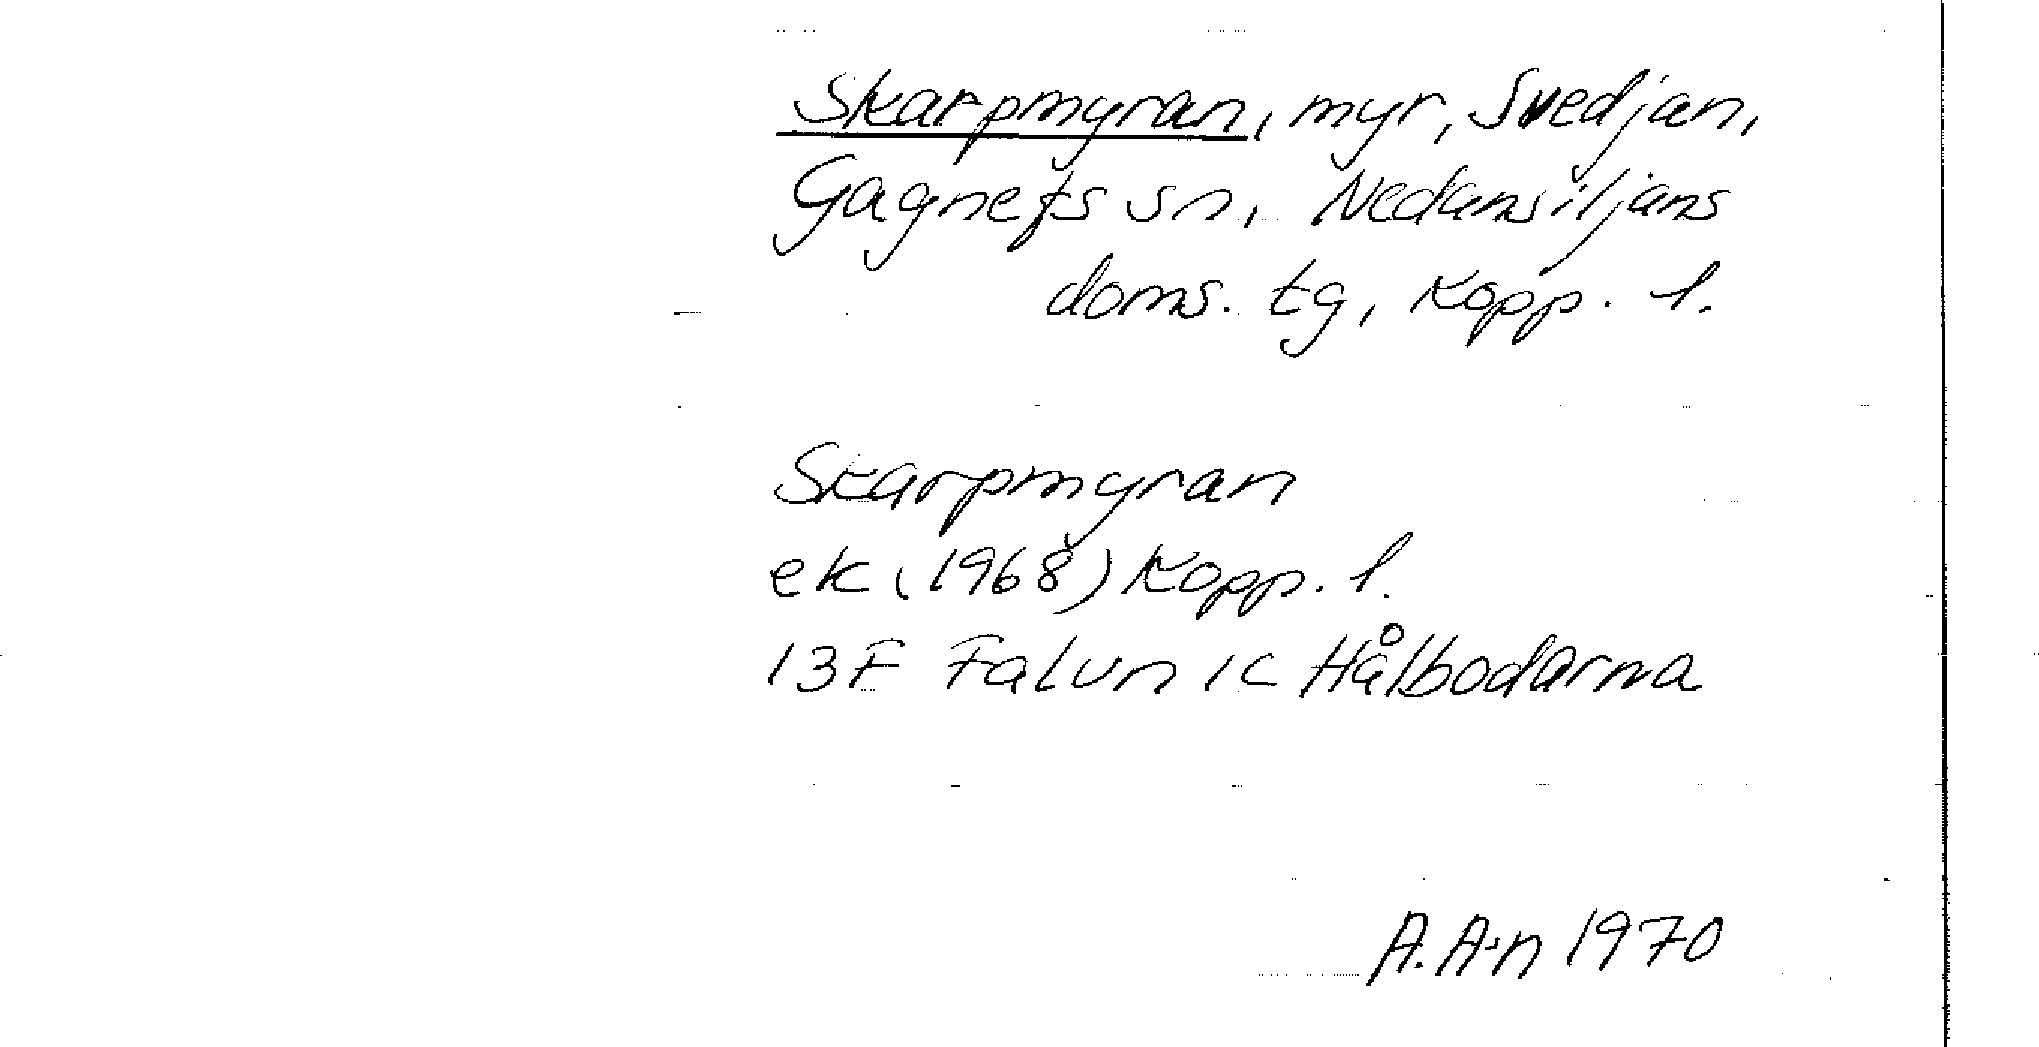 Skarpmyran, myr, Svedjan,
Gagnefs sn, Nedansiljans
doms. tg, Kopp. l.
Skarpmyran
ek (1968) Kopp. l.
13F Falun 1c Hålbodarna
A. A:n 1970